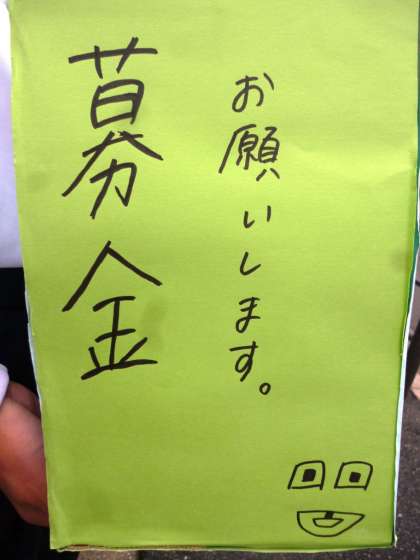 募金
お願いします。